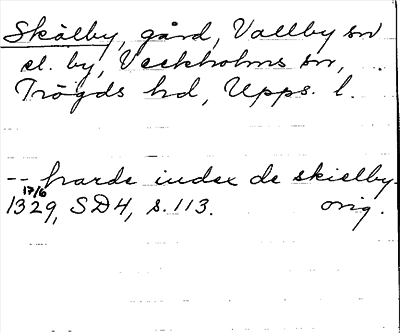 Skälby, gård, Vallby sn
el. by, Veckholms sn,
Trögds hd, Upps. l.
-- harde index de skielby
17/6
1329, SD4, s. 113. orig.